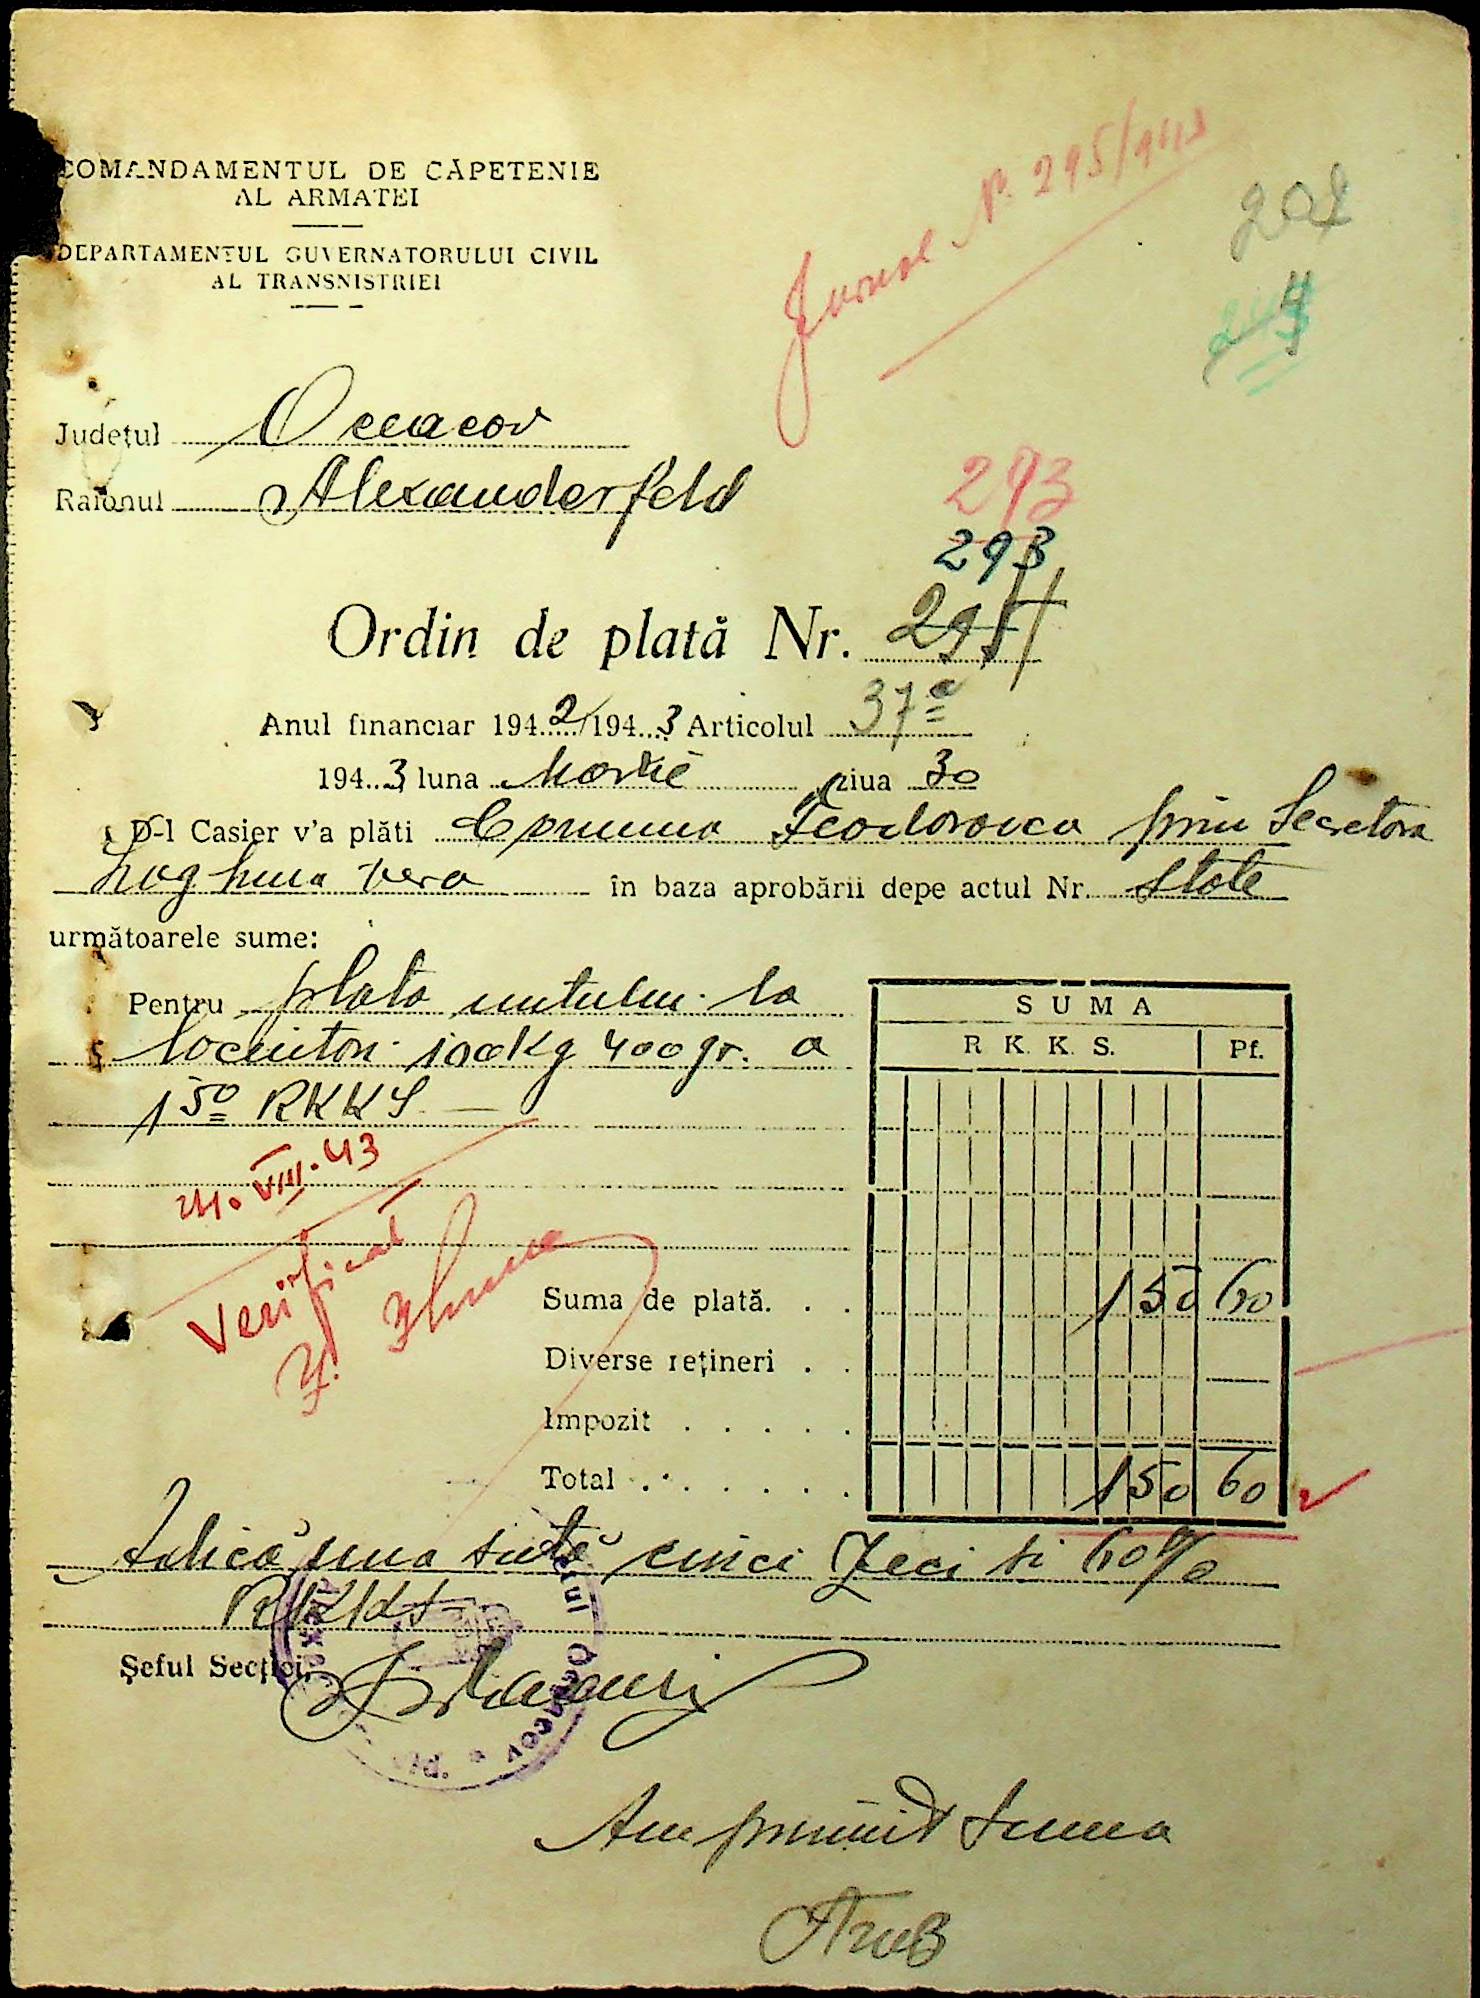 COMANDAMENTUL DE CĂPETENIE
AL ARMATEI
DEPARTAMENTUL GUVERNATORULUI CIVIL
AL TRANSNISTRIEI
Jurnal N. 295/943
Județul Oceacov
Raionul Alexanderfeld
293
293
Ordin de plată Nr.
Anul financiar 1942/1943 Articolul 37a
1943 luna Martie ziua 30
D-l Casier v'a plăti Comuna Feodorovca prin Secretara
Vera în baza aprobării depe actul Nr. State
următoarele sume:
Pentru plata untului la
locuitori 100Kg 400gr. a
150 RKKS
SUMA
R K. K. S. Pf.
24. VIII. 43
Verificat
Suma de plată. . . 150 60
Diverse rețineri . .
Impozit . . . . .
Total . . . . . . . 150 60
Adică una sută cinci zeci si 60%
RKKS
Șeful Secției,
Am primit suma